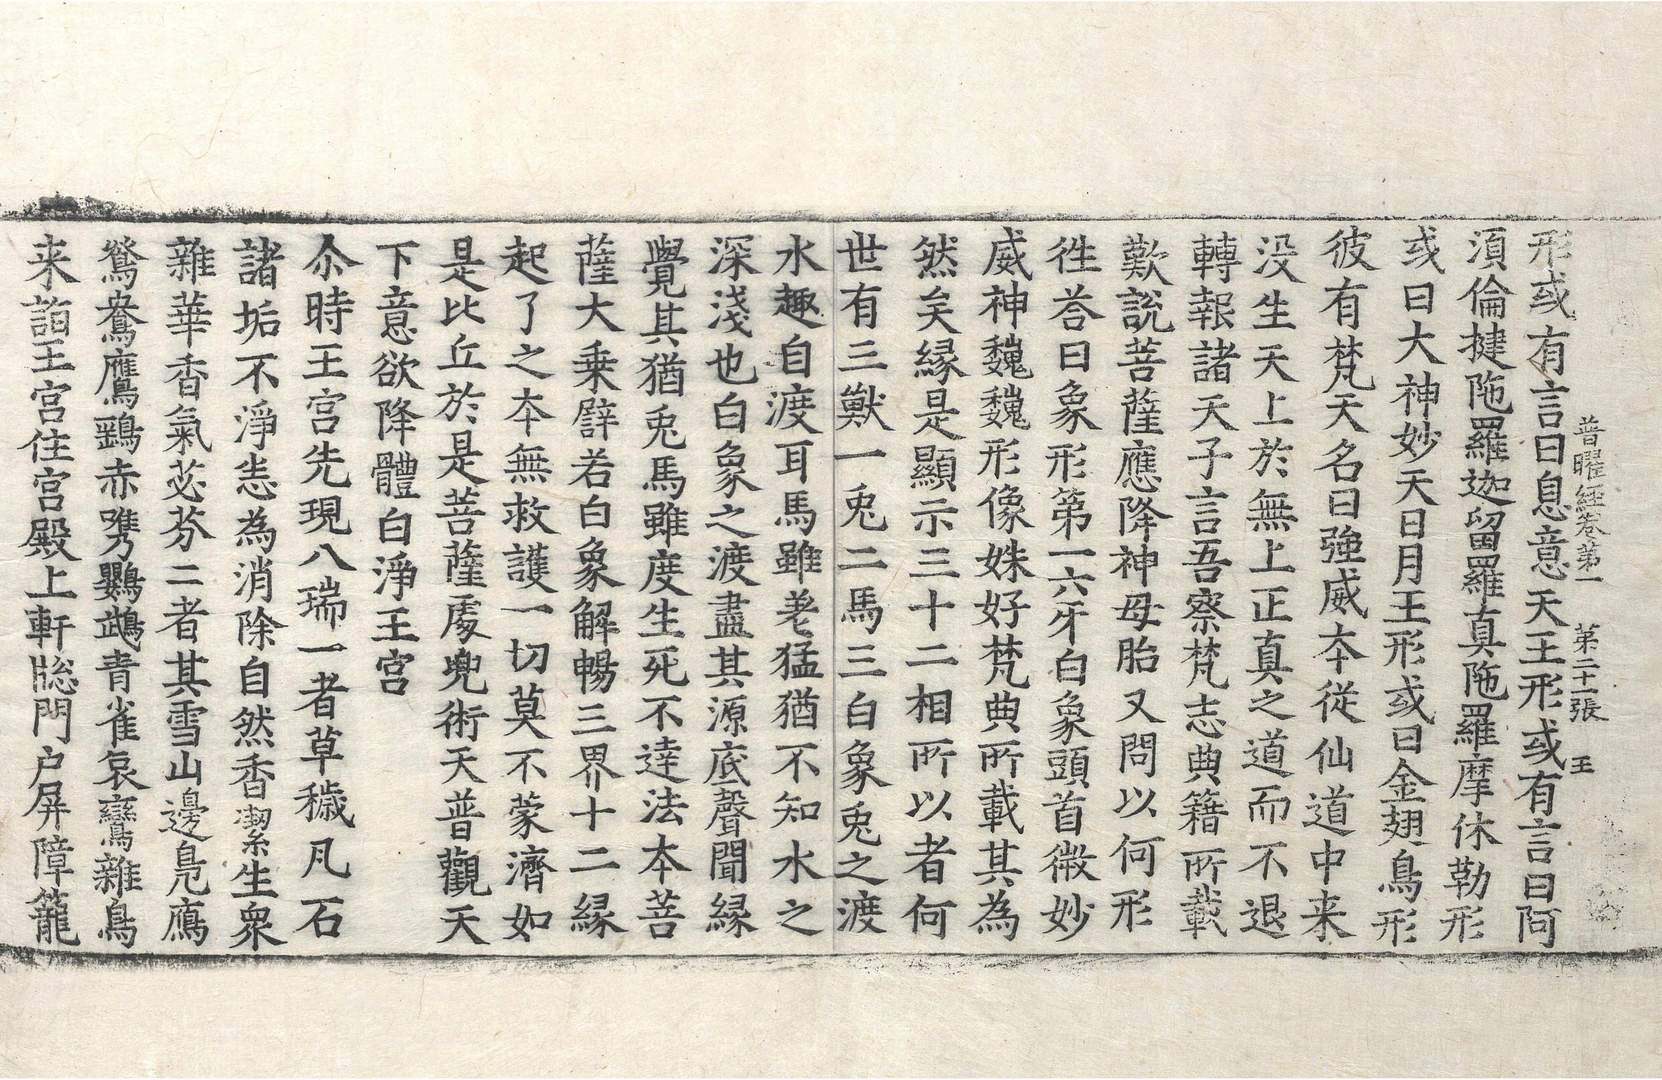 普曜經卷第一 第二十一張 王
形或有言曰息意天王形或有言曰阿
須倫揵陁羅迦留羅真陁羅摩休勒形
或曰大神妙天日月王形或曰金翅鳥形
彼有梵天名曰強威夲從仙道中来
没生天上於無上正真之道而不退
轉報諸天子言吾察梵志典籍所載
歎説菩薩應降神母胎又問以何形
徃荅曰象形第一六牙白象頭首微妙
威神巍巍形像姝好梵典所載其為
然矣縁是顯示三十二相所以者何
世有三獸一兎二馬三白象兎之渡
水趣自渡耳馬雖差猛猶不知水之
深淺也白象之渡盡其源底聲聞縁
覺其猶兎馬雖度生死不達法夲菩
薩大乗譬若白象解暢三界十二縁
起了之夲無救護一切莫不蒙濟如
是比丘於是菩薩處兜術天普觀天
下意欲降體白淨王宫
尒時王宫先現八瑞一者草穢凡石
諸垢不淨恚為消除自然香潔生衆
雜華香氣苾芬二者其雪山邊鳧鴈
鴛鴦鷹鷂赤㗨鸚鵡青雀哀鸞雜鳥
来詣王宫住宫殿上軒牎門户屏障籠